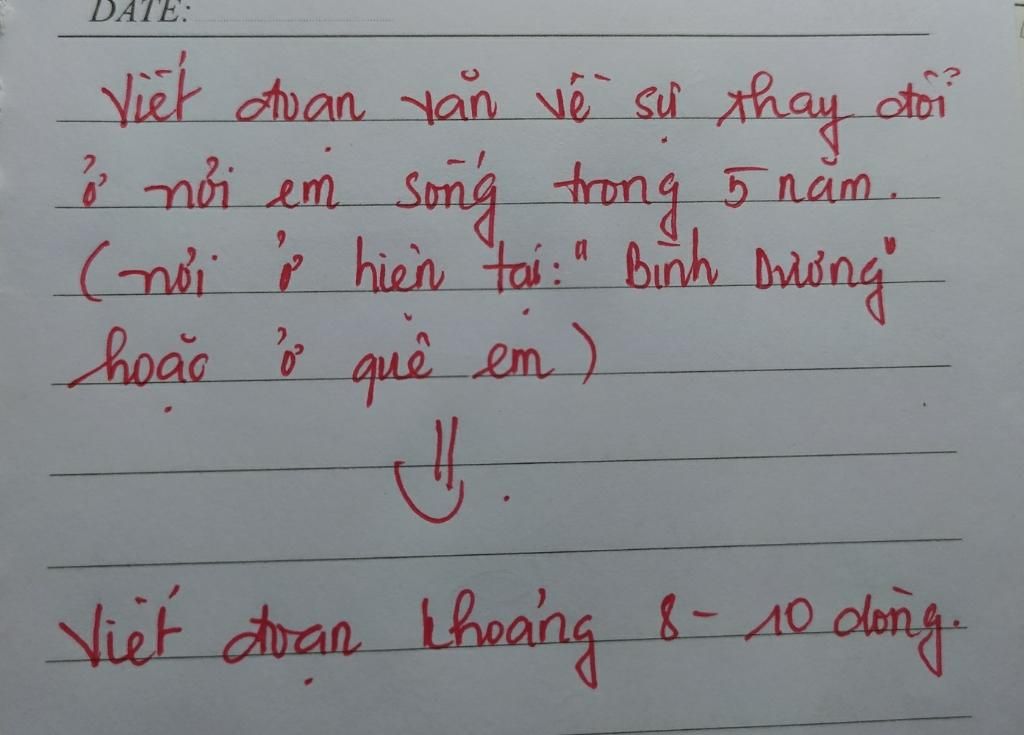 DATE:
Viết đoạn văn về sự thay đổi
ở nơi em sống trong 5 năm.
(nơi ở hiện tại: "Bình Dương"
hoặc ở quê em)
Viết đoạn khoảng 8 - 10 dòng.